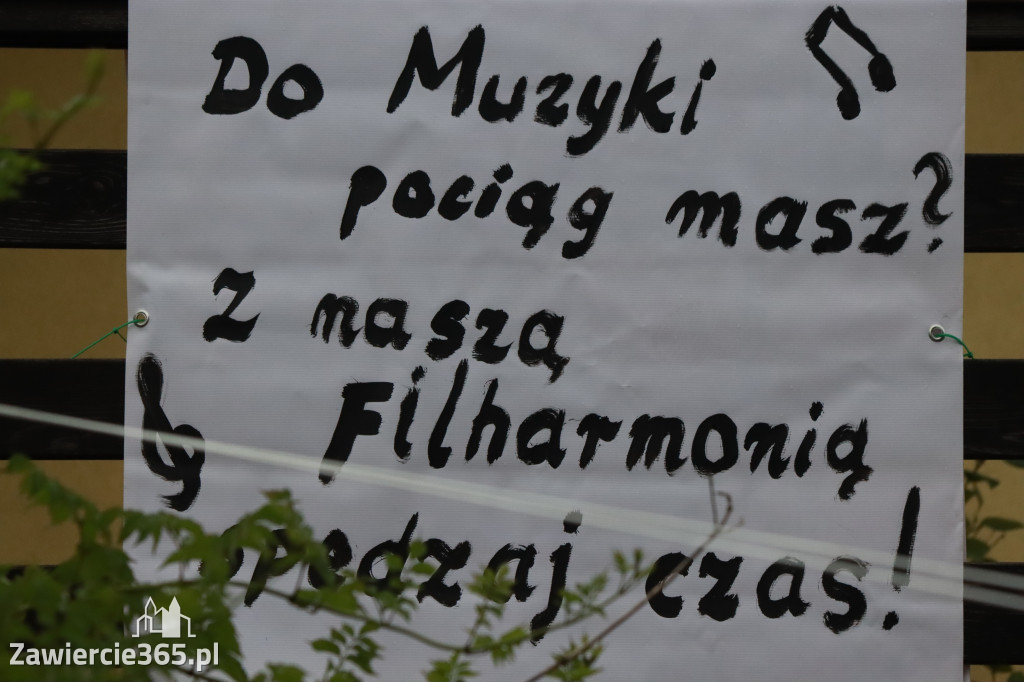 Do Muzyki
pociąg masz?
Z naszą
Filharmonią
opędzaj czas!
Zawiercie365.pl